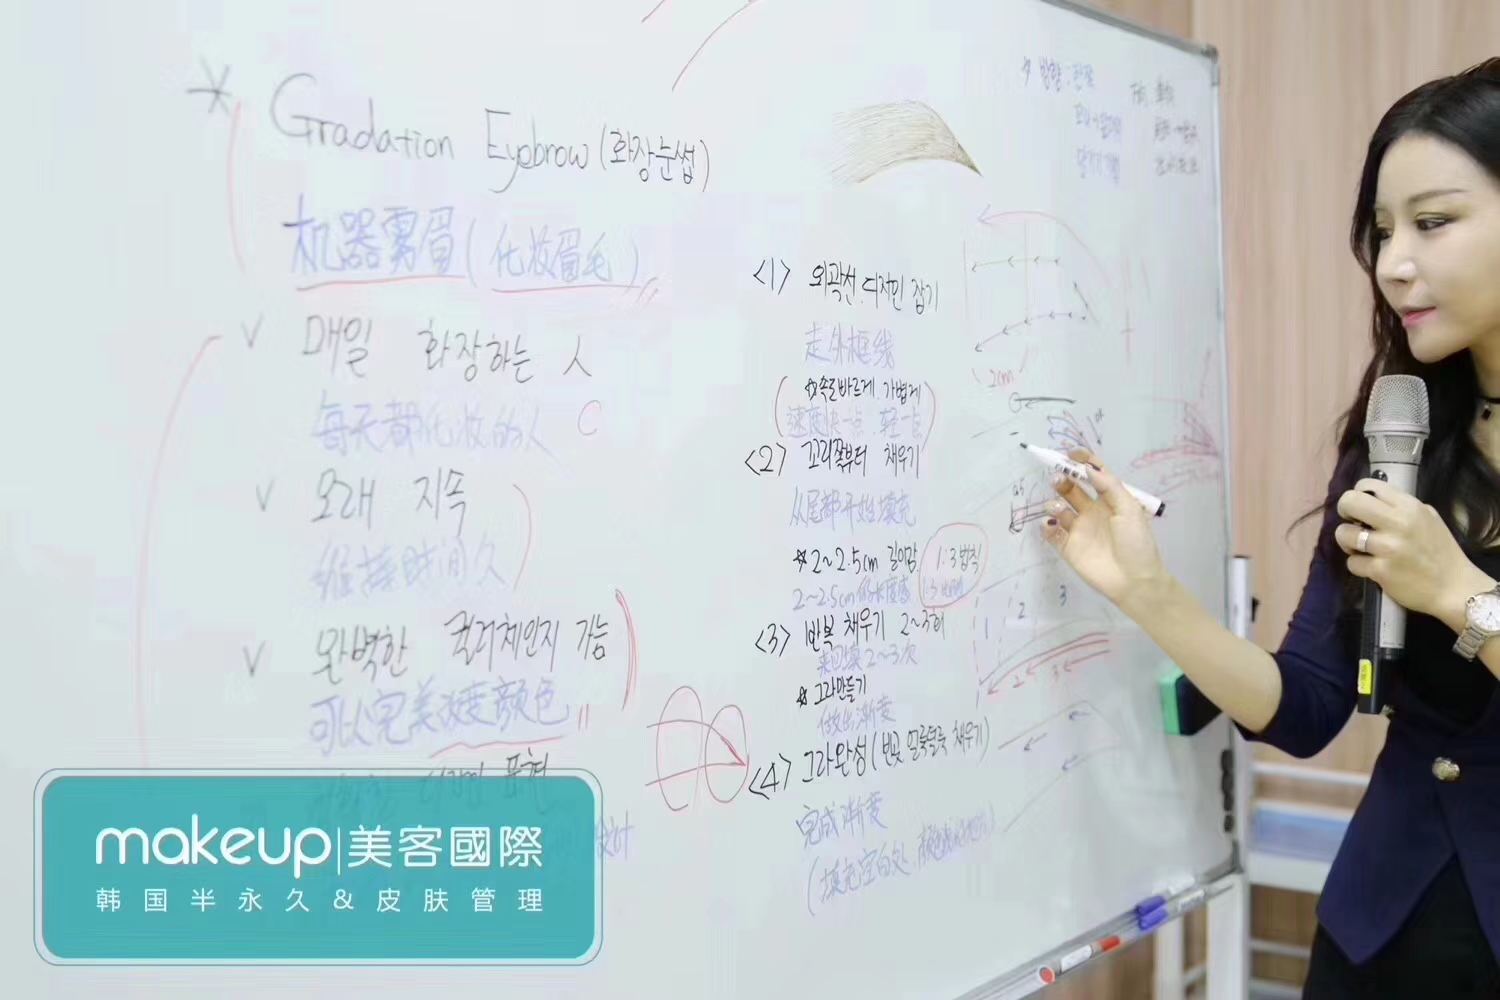 * Gradation Eyebrow (화장눈썹)
机器雾眉 (化妆眉毛)
V 매일 화장하는 人
每天都化妆的人
V 오래 지속
维持时间久
V 완벽한 컬러체인지 가능
可以完美改变颜色
표현
设计
<1> 외곽선.디자인 잡기
走外框线
☆속도바르게 가볍게
速度快一点 轻一点
<2> 꼬리쪽부터 채우기
从尾部开始填充
☆2~2.5cm 길이감 1:3법칙
2~2.5cm的长度感
<3> 반복 채우기 2~3회
来回填2~3次
☆그라만들기
做出渐变
<4> 그라완성(빈곳 얼룩덜룩 채우기)
完成渐变
(填充空的处
방향:
2cm
1 2 3
2 3
makeup|美客國際
韩国半永久&皮肤管理